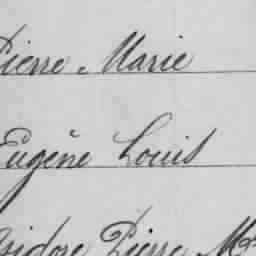 Pierre Marie
Eugène Louis
Isidore Pierre